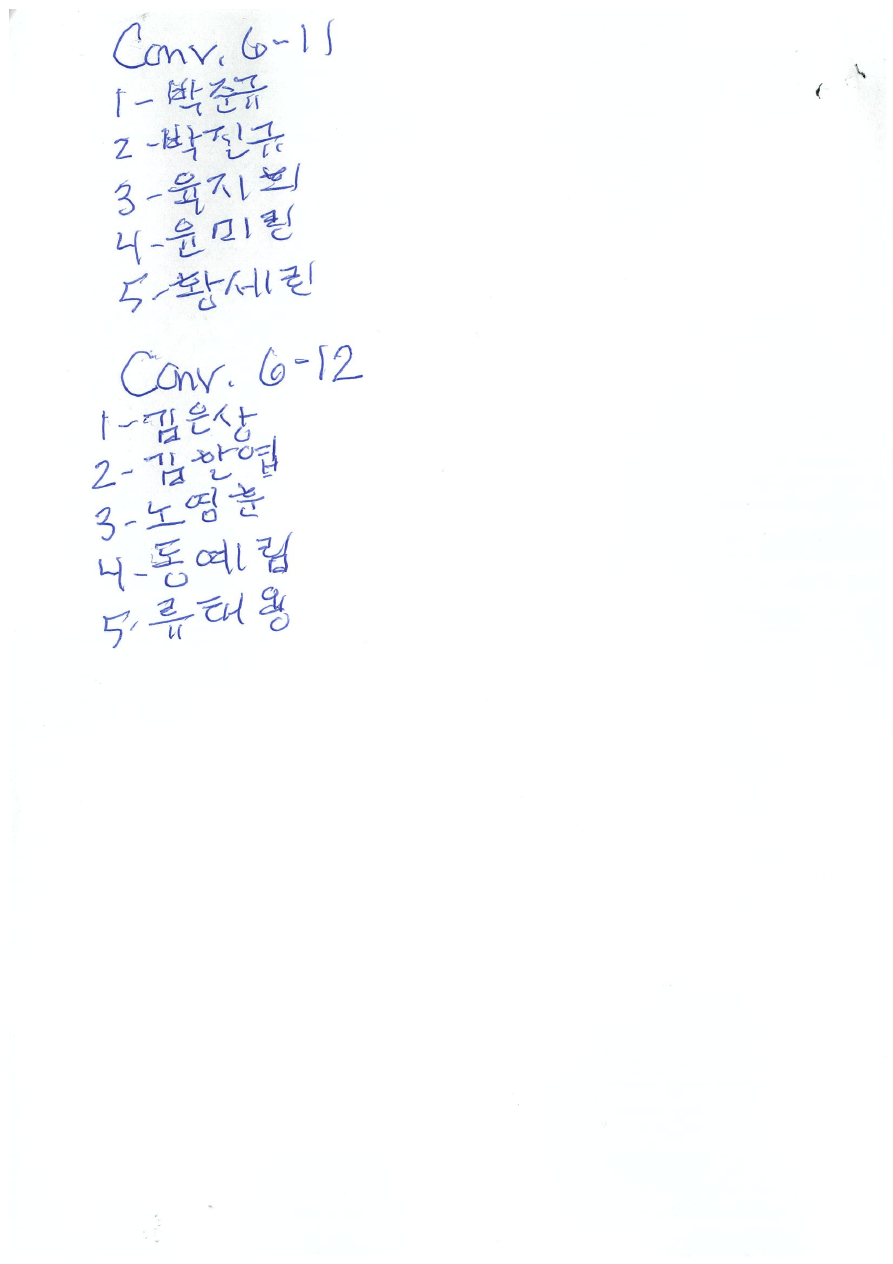 Conv. 6-11
1-박준규
2-박진규
3-육지희
4-윤미린
5-황세린
Conv. 6-12
1-김은상
2-김한엽
3-노영훈
4-동예림
5-류태왕